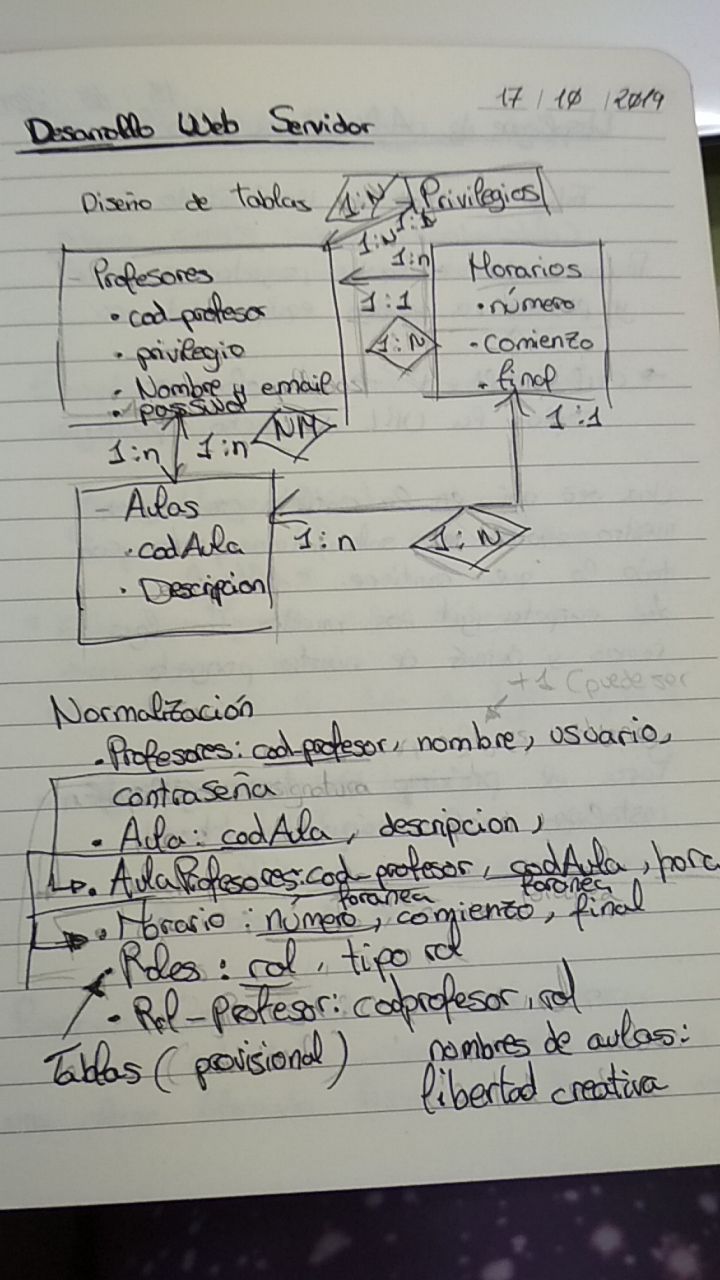 17 / 10 / 2019
Desarrollo Web Servidor
Diseño de tablas 1:N Privilegios
1:N 1:1
1:n
- Profesores
• cod_profesor
• privilegio
• Nombre y email
• passwd
Horarios
• número
• comienzo
• final
1:1
1:N
1:n 1:n NM
1:1
- Aulas
• codAula
• Descripcion
1:n 1:N
+1 (puede ser
Normalización
• Profesores: cod_profesor, nombre, usuario,
contraseña
• Aula: codAula, descripcion,
• AulaProfesores: cod_profesor, codAula, hora
foranea foranea
• Horario: número, comienzo, final
• Roles: rol, tipo rol
• Rol-Profesor: codprofesor, rol
Tablas (provisional)
nombres de aulas:
libertad creativa